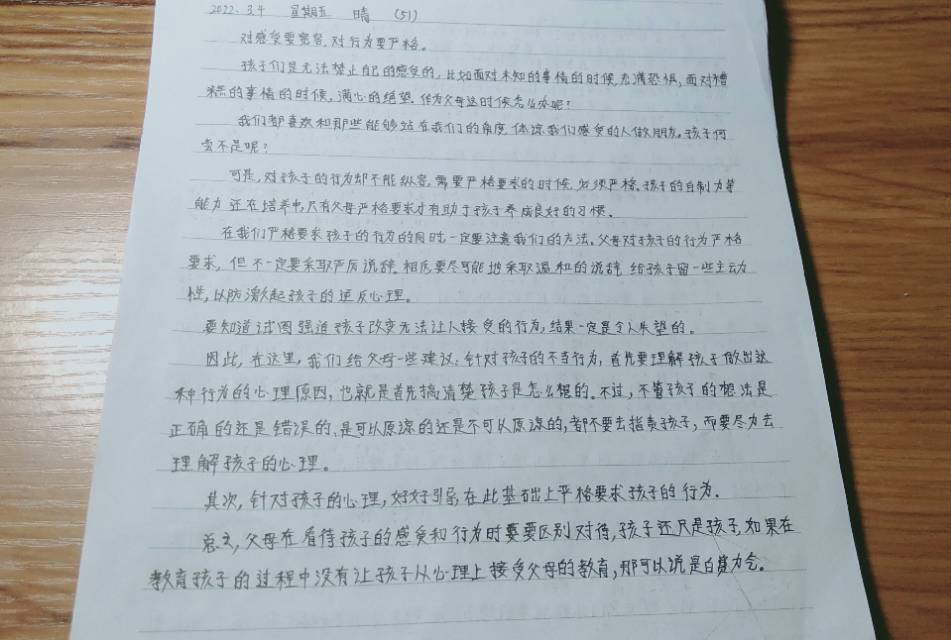 2022.3.4 星期五 晴 (51)
对感受要宽容,对行为要严格。
孩子们是无法禁止自己的感受的,比如面对未知的事情的时候,充满恐惧,面对糟
糕的事情的时候,满心的绝望.作为父母这时候怎么办呢?
我们都喜欢和那些能够站在我们的角度,体谅我们感受的人做朋友.孩子何
尝不是呢?
可是,对孩子的行为却不能纵容,需要严格要求的时候,必须严格.孩子的自制力等
能力还在培养中,只有父母严格要求才有助于孩子养成良好的习惯。
在我们严格要求孩子的行为的同时,一定要注意我们的方法.父母对孩子的行为严格
要求,但不一定要采取严厉说辞,相反要尽可能地采取温和的说辞,给孩子留一些主动
性,以防激起孩子的逆反心理。
要知道试图强迫孩子改变无法让人接受的行为,结果一定是令人失望的。
因此,在这里,我们给父母一些建议:针对孩子的不当行为,首先要理解孩子做出这
种行为的心理原因,也就是首先搞清楚孩子是怎么想的.不过,不管孩子的想法是
正确的还是错误的,是可以原谅的还是不可以原谅的,都不要去指责孩子,而要尽力去
理解孩子的心理。
其次,针对孩子的心理,好好引导,在此基础上严格要求孩子的行为.
总之,父母在看待孩子的感受和行为时要区别对待,孩子还只是孩子,如果在
教育孩子的过程中没有让孩子从心理上接受父母的教育,那可以说是白费力气。